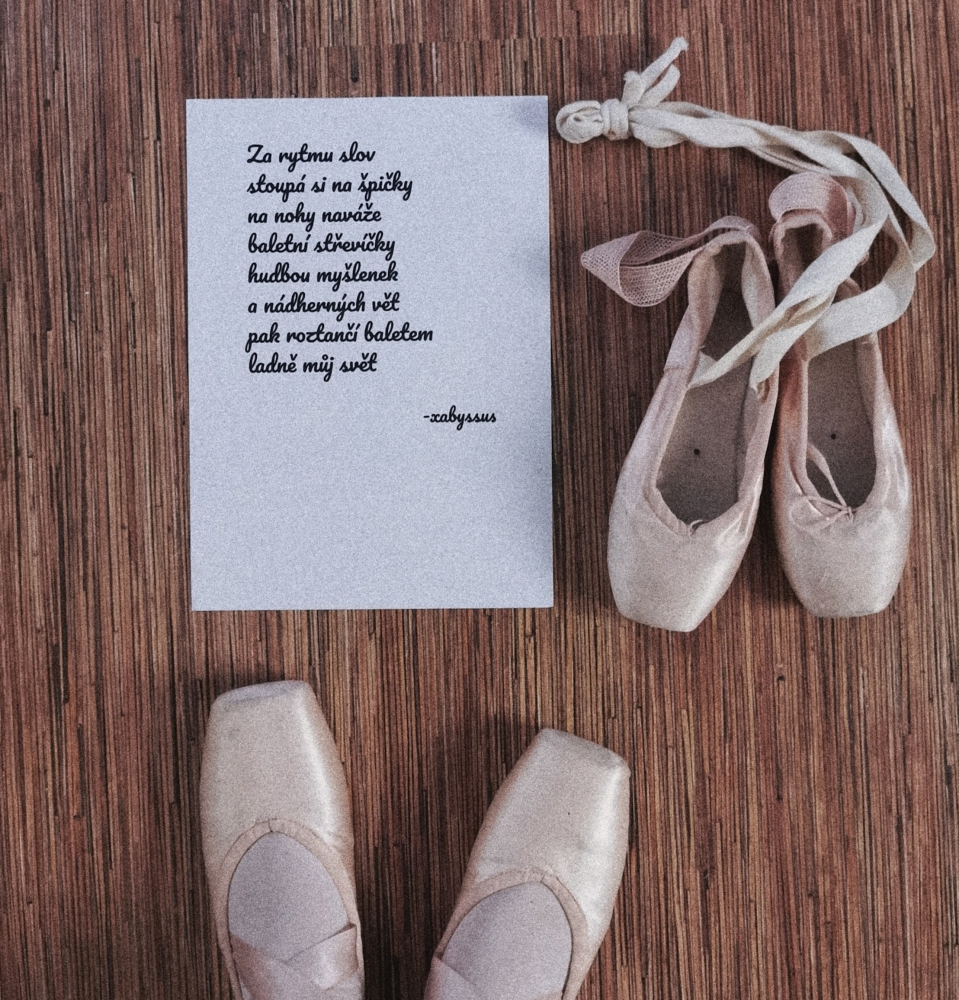 Za rytmu slov
stoupá si na špičky
na nohy naváže
baletní střevíčky
hudbou myšlenek
a nádherných vět
pak roztančí baletem
ladně můj svět
-xabyssus